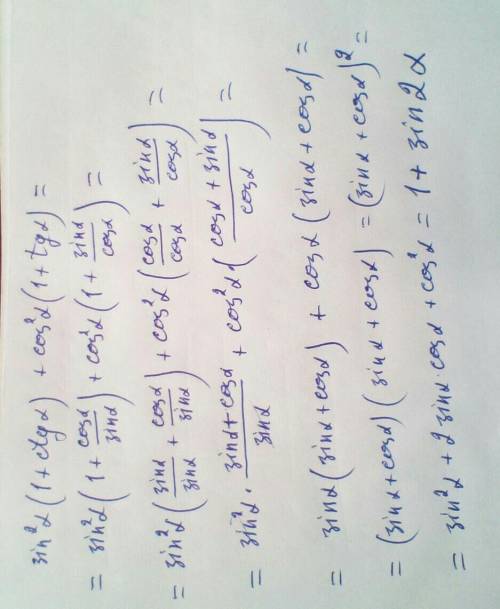 sin²α(1+ctgα) + cos²α(1+tgα) =
= sin²α(1 + cosα/sinα) + cos²α(1 + sinα/cosα) =
= sin²α(sinα/sinα + cosα/sinα) + cos²α(cosα/cosα + sinα/cosα) =
= sin²α · (sinα+cosα)/sinα + cos²α((cosα+sinα)/cosα) =
= sinα(sinα+cosα) + cosα(sinα+cosα) =
= (sinα+cosα)(sinα+cosα) = (sinα+cosα)² =
= sin²α + 2sinα·cosα + cos²α = 1 + sin2α